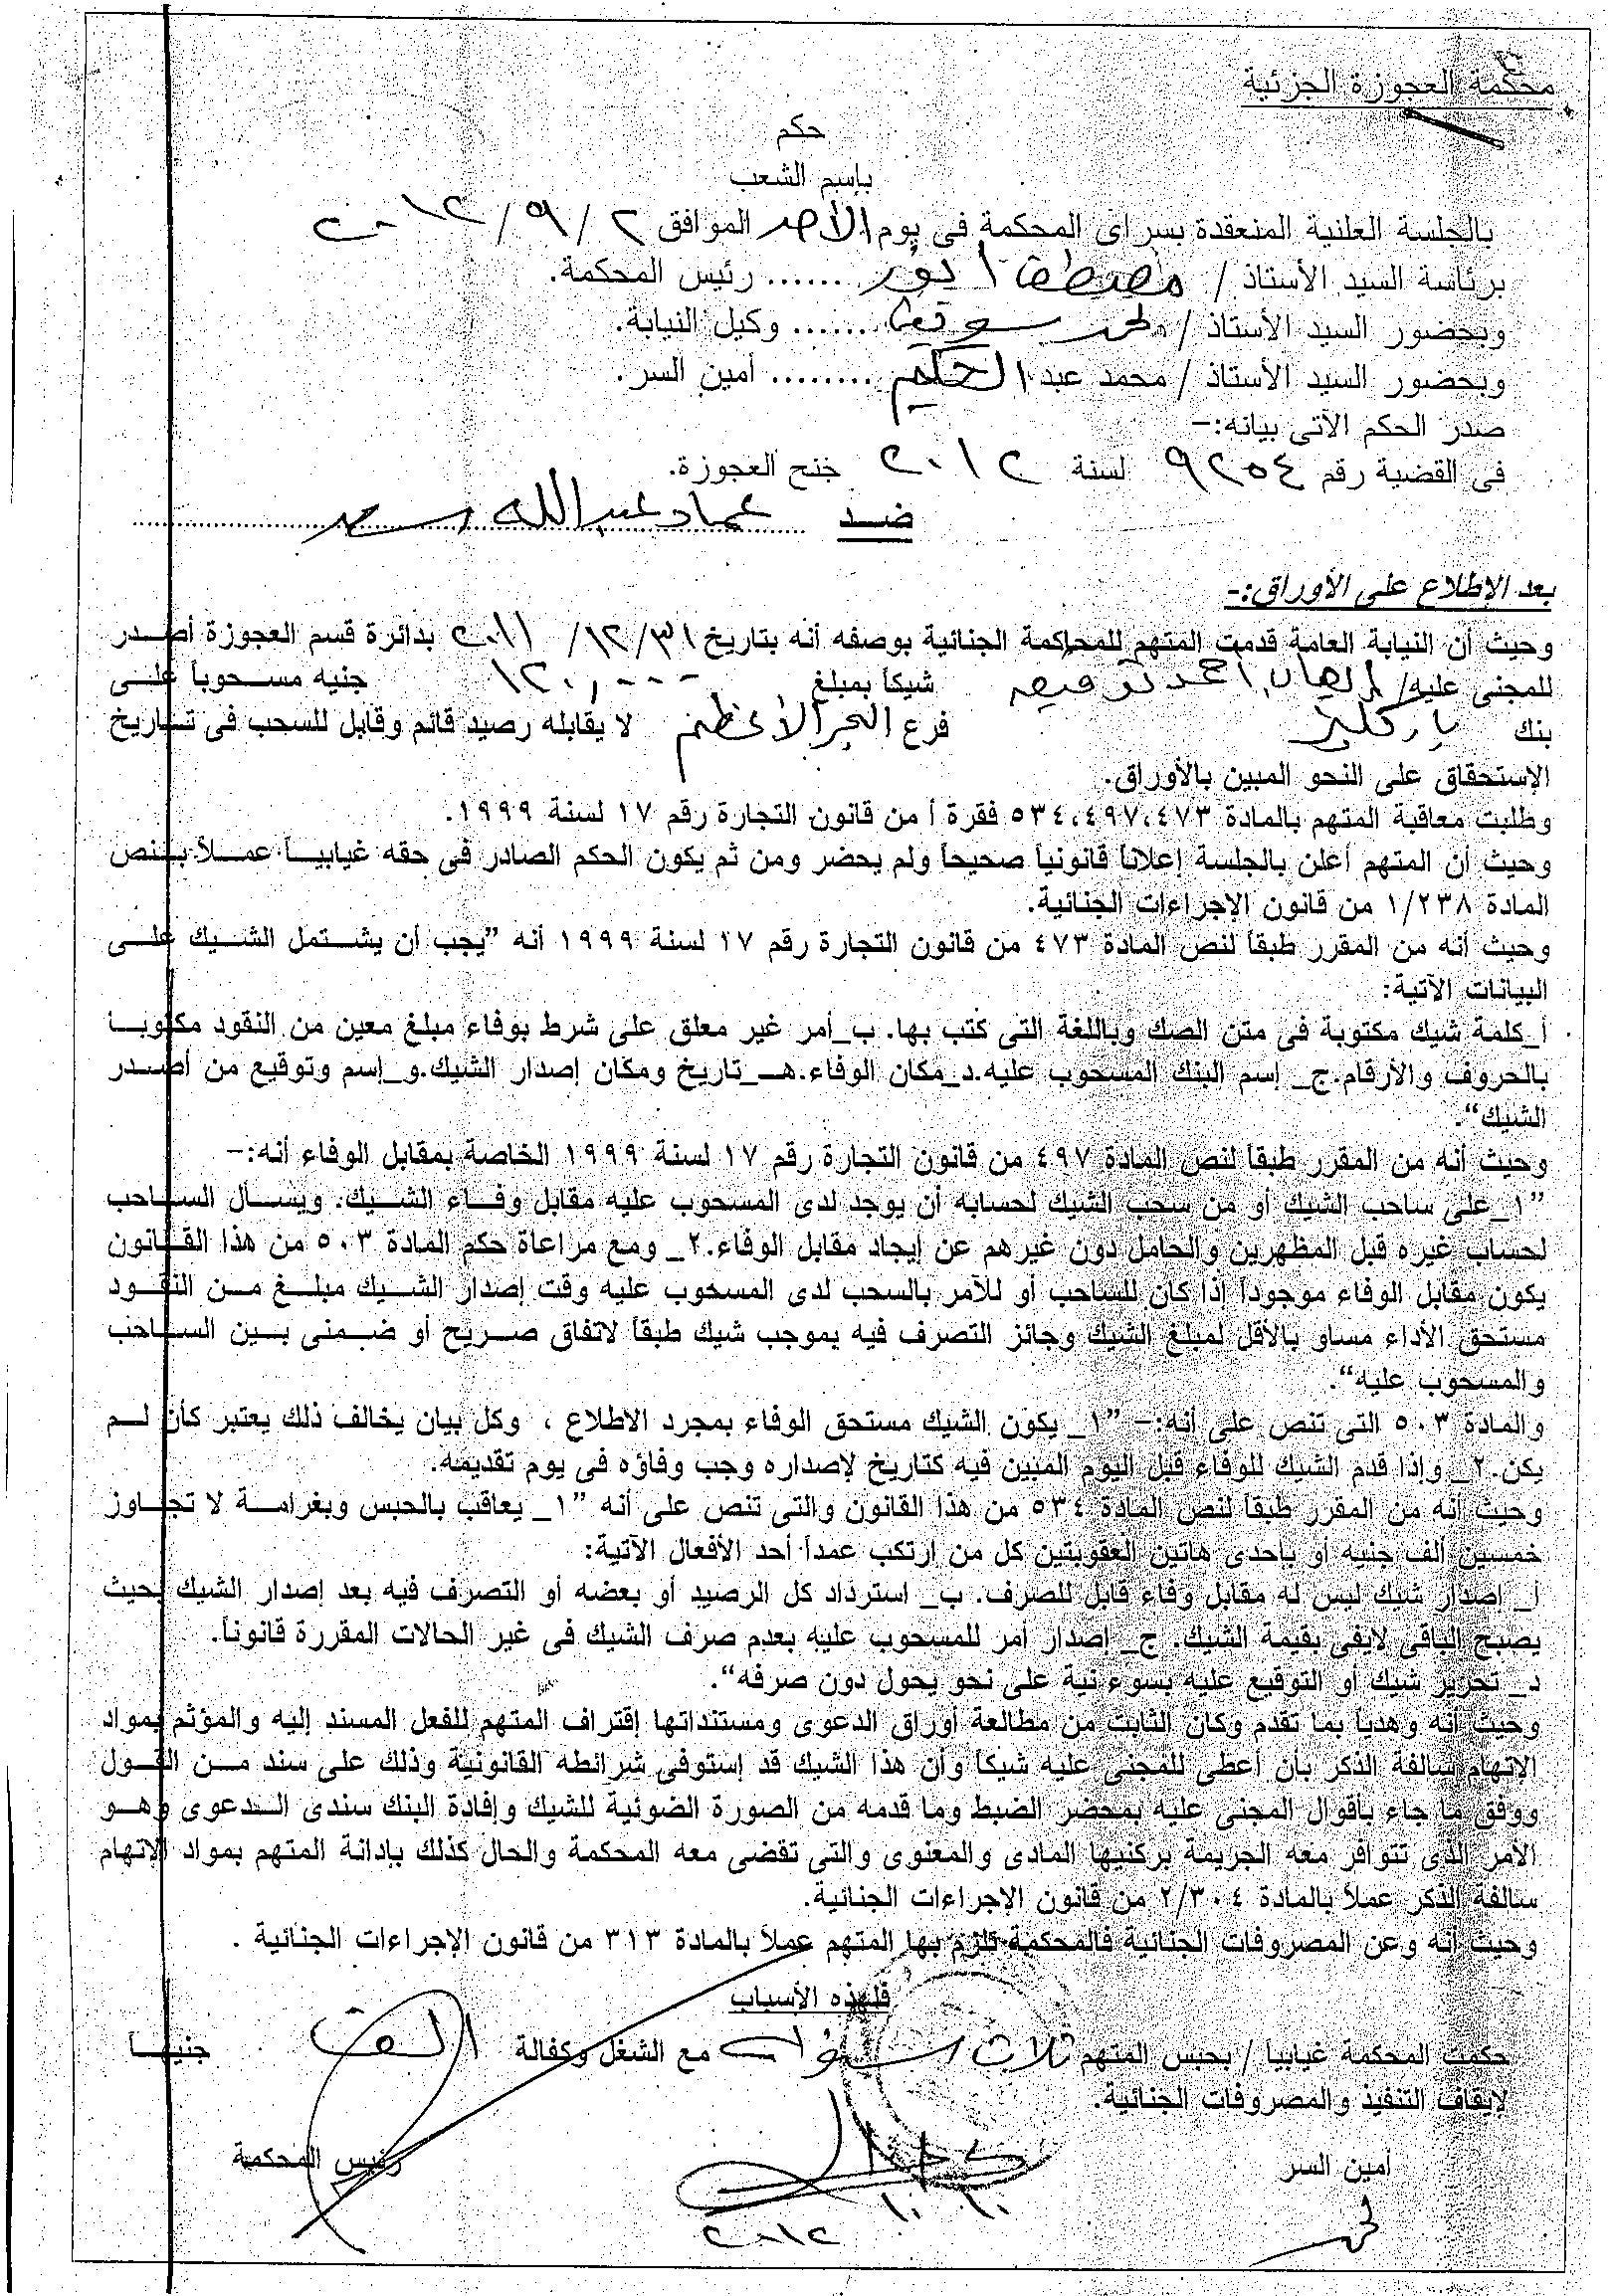 محكمة العجوزة الجزئية
حكم
بإسم الشعب
بالجلسة العلنية المنعقدة بسراى المحكمة فى يوم الأحد الموافق ٢ / ٩ / ٢٠١٢
برئاسة السيد الأستاذ / مصطفى ...... رئيس المحكمة.
وبحضور السيد الأستاذ / ....... وكيل النيابة.
وبحضور السيد الأستاذ / محمد عبد الحكيم ........ أمين السر.
صدر الحكم الآتى بيانه:-
فى القضية رقم ٩٢٥٤ لسنة ٢٠١٢ جنح العجوزة.
ضد عماد عبدالله سعد
بعد الإطلاع على الأوراق:-
وحيث أن النيابة العامة قدمت المتهم للمحاكمة الجنائية بوصفه أنه بتاريخ ٣١/ ١٢/ ٢٠١١ بدائرة قسم العجوزة أصدر
للمجنى عليه/ احمد شيكاً بمبلغ ١٢٠,٠٠٠ جنيه مسحوباً على
بنك باركليز فرع البحر الأعظم لا يقابله رصيد قائم وقابل للسحب فى تاريخ
الإستحقاق على النحو المبين بالأوراق.
وطلبت معاقبة المتهم بالمادة ٤٧٣،٤٩٧،٥٣٤ فقرة أ من قانون التجارة رقم ١٧ لسنة ١٩٩٩.
وحيث أن المتهم أعلن بالجلسة إعلاناً قانونياً صحيحاً ولم يحضر ومن ثم يكون الحكم الصادر فى حقه غيابياً عملاً بنص
المادة ١/٢٣٨ من قانون الإجراءات الجنائية.
وحيث أنه من المقرر طبقاً لنص المادة ٤٧٣ من قانون التجارة رقم ١٧ لسنة ١٩٩٩ أنه "يجب أن يشتمل الشيك على
البيانات الآتية:
أ_كلمة شيك مكتوبة فى متن الصك وباللغة التى كتب بها. ب_أمر غير معلق على شرط بوفاء مبلغ معين من النقود مكتوباً
بالحروف والأرقام.ج_ إسم البنك المسحوب عليه.د_مكان الوفاء.هـ_تاريخ ومكان إصدار الشيك.و_إسم وتوقيع من أصدر
الشيك".
وحيث أنه من المقرر طبقاً لنص المادة ٤٩٧ من قانون التجارة رقم ١٧ لسنة ١٩٩٩ الخاصة بمقابل الوفاء أنه:-
"١_على ساحب الشيك أو من سحب الشيك لحسابه أن يوجد لدى المسحوب عليه مقابل وفاء الشيك. ويسأل الساحب
لحساب غيره قبل المظهرين والحامل دون غيرهم عن إيجاد مقابل الوفاء.٢_ ومع مراعاة حكم المادة ٥٠٣ من هذا القانون
يكون مقابل الوفاء موجوداً إذا كان للساحب أو للآمر بالسحب لدى المسحوب عليه وقت إصدار الشيك مبلغ من النقود
مستحق الأداء مساو بالأقل لمبلغ الشيك وجائز التصرف فيه بموجب شيك طبقاً لاتفاق صريح أو ضمنى بين الساحب
والمسحوب عليه".
والمادة ٥٠٣ التى تنص على أنه:- "١_ يكون الشيك مستحق الوفاء بمجرد الاطلاع ، وكل بيان يخالف ذلك يعتبر كأن لم
يكن.٢_ وإذا قدم الشيك للوفاء قبل اليوم المبين فيه كتاريخ لإصداره وجب وفاؤه فى يوم تقديمه.
وحيث أنه من المقرر طبقاً لنص المادة ٥٣٤ من هذا القانون والتى تنص على أنه "١_ يعاقب بالحبس وبغرامة لا تجاوز
خمسين ألف جنيه أو بإحدى هاتين العقوبتين كل من إرتكب عمداً أحد الأفعال الآتية:
أ_ إصدار شيك ليس له مقابل وفاء قابل للصرف. ب_ استرداد كل الرصيد أو بعضه أو التصرف فيه بعد إصدار الشيك بحيث
يصبح الباقى لايفى بقيمة الشيك. ج_ إصدار أمر للمسحوب عليه بعدم صرف الشيك فى غير الحالات المقررة قانوناً.
د_ تحرير شيك أو التوقيع عليه بسوء نية على نحو يحول دون صرفه".
وحيث أنه وهدياً بما تقدم وكان الثابت من مطالعة أوراق الدعوى ومستنداتها إقتراف المتهم للفعل المسند إليه والمؤثم بمواد
الاتهام سالفة الذكر بأن أعطى للمجنى عليه شيكاً وأن هذا الشيك قد إستوفى شرائطه القانونية وذلك على سند من القول
ووفق ما جاء بأقوال المجنى عليه بمحضر الضبط وما قدمه من الصورة الضوئية للشيك وإفادة البنك سندى الدعوى وهو
الأمر الذى تتوافر معه الجريمة بركنيها المادى والمعنوى والتى تقضى معه المحكمة والحال كذلك بإدانة المتهم بمواد الإتهام
سالفة الذكر عملاً بالمادة ٢/٣٠٤ من قانون الإجراءات الجنائية.
وحيث أنه وعن المصروفات الجنائية فالمحكمة تلزم بها المتهم عملاً بالمادة ٣١٣ من قانون الإجراءات الجنائية .
فلهذه الأسباب
حكمت المحكمة غيابياً / بحبس المتهم ثلاث سنوات مع الشغل وكفالة الف جنيهاً
لإيقاف التنفيذ والمصروفات الجنائية.
أمين السر رئيس المحكمة
٢٠١٢